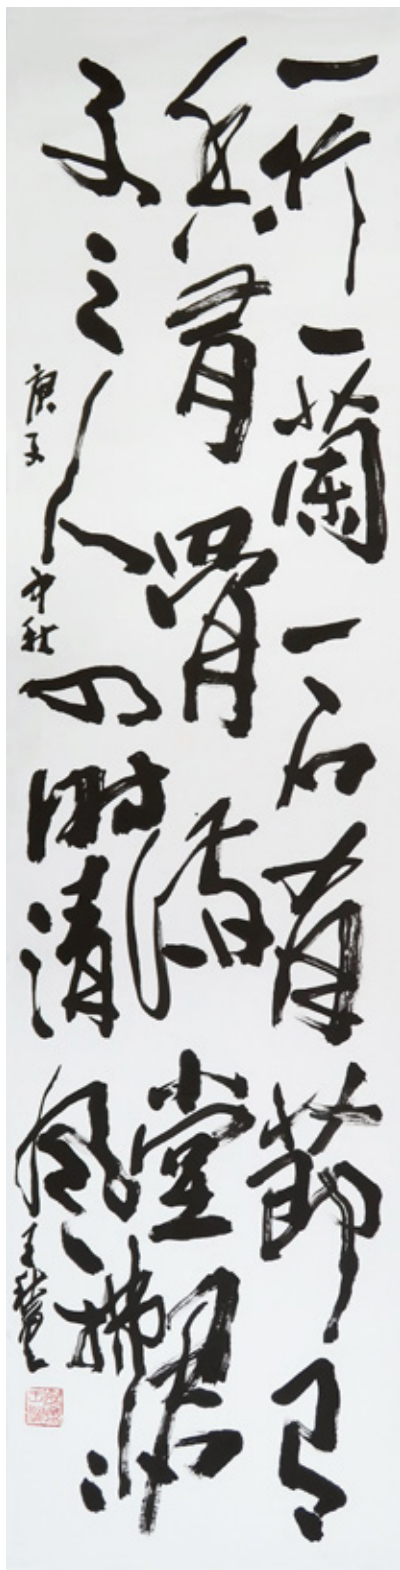 一竹一蘭一石有節有
香有骨滿堂君
子之人四時清風拂
庚子中秋